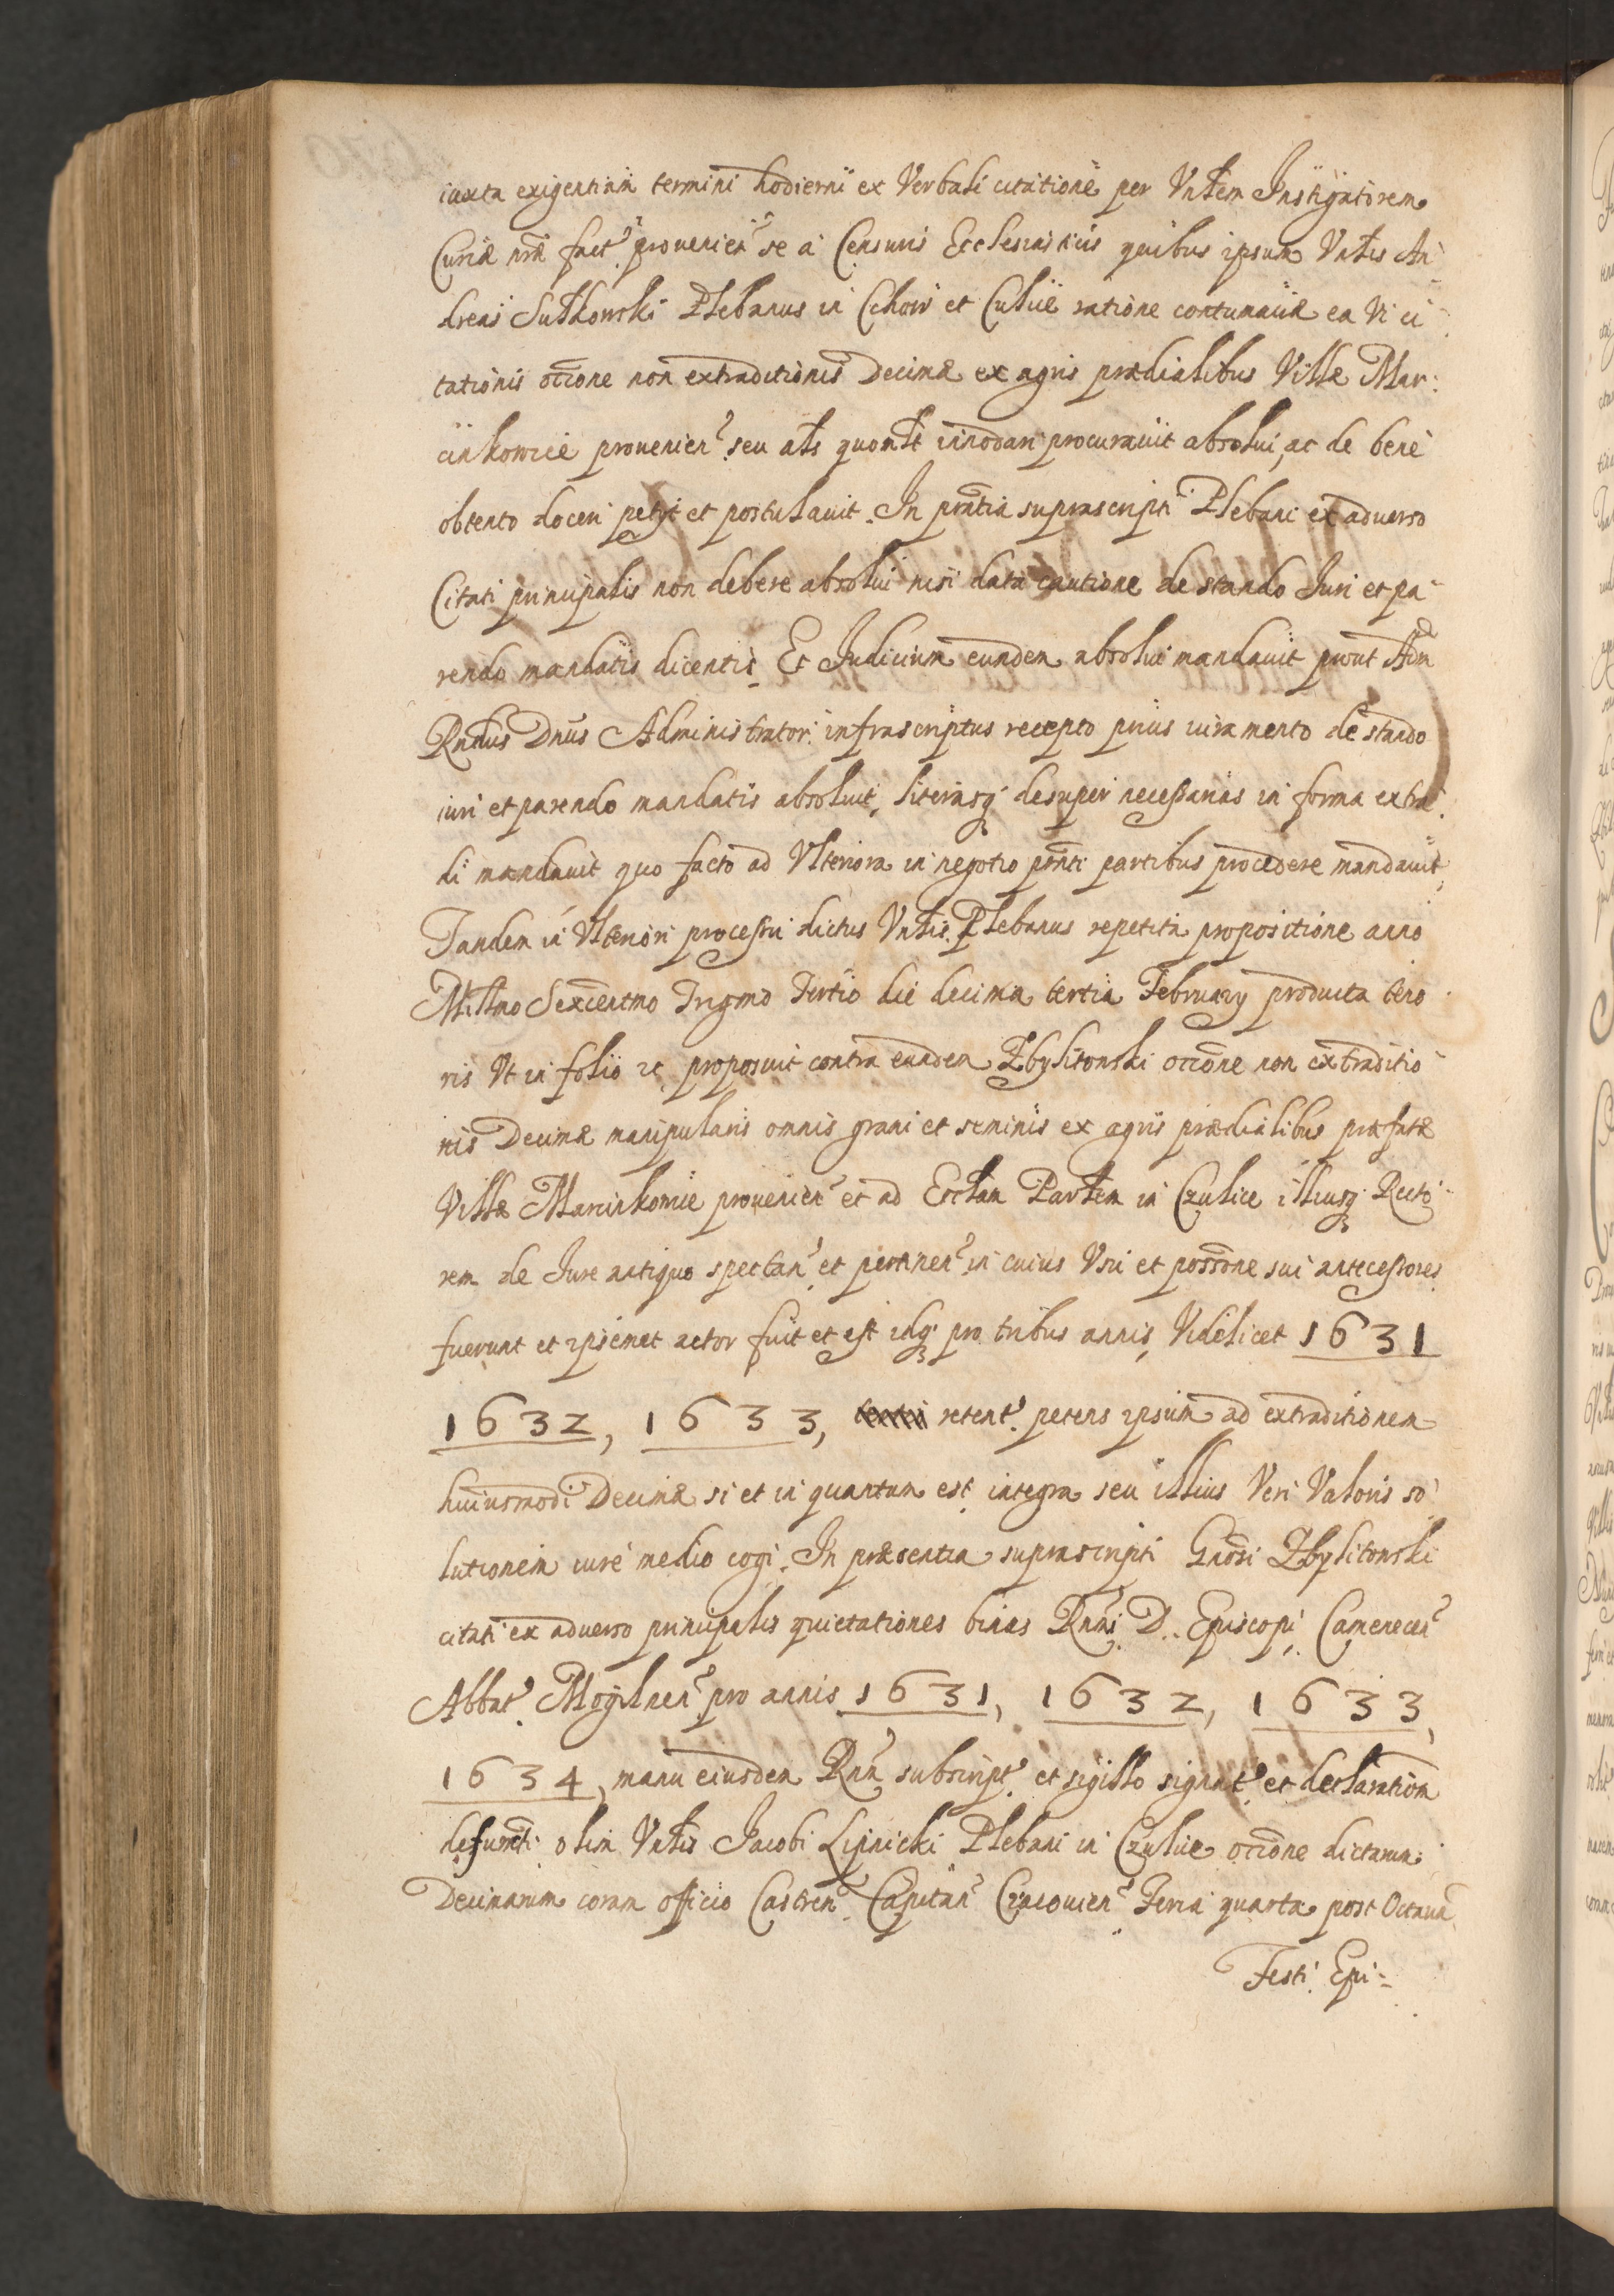 iuxta exigentiam termini hodierni ex Verbali citatione per Vnlem Instigatorem
Curiæ nræ fact. provenien. se a Censuris Ecclesiasticis quibus ipsum Vnlis An
dreas Sulkowski Plebanus in Cchow et Culice ratione contumaciæ ea Vi ci
tationis occione non extraditionis Decimæ ex agris prædialibus Villæ Mar
cinkowice provenien. seu als quomlt innodari procuravit absolui, ac de bene
obtento doceri petyt et postulavit. In pntia suprascripti Plebani ex adverso
Citati principalis non debere absolui nisi data cautione de stando Juri et pa
rendo mandatis dicentis. Et Judicium eundem absolui mandavit prout Adm
Rndus Dnus Administrator infrascriptus recepto prius iuramento de stando
iuri et parendo mandatis absoluit, literasq desuper necessarias in forma extra
di mandavit quo facto ad Vlteriora in negotio pnti partibus procedere mandavit,
Tandem in Vlteriori processu dictus Vnlis Plebanus repetita propositione anno
Millmo Sexcentmo Trigmo Tertio die decima tertia February producta teno
ris Vt in folio 2t proposuit contra eundem Zbylitowski occone non extraditio
nis Decimæ manipularis omnis grani et seminis ex agris prædialibus præfatæ
Villæ Marcinkowice provenien. et ad Ecclam Parlem in Czulice illiusq Recto
rem de Jure antiquo spectan. et pertinen. in cuius Vsu et possone sui antecessores
fuerunt et ipsemet actor fuit et est idq pro tribus annis, Videlicet 1631
1632, 1633, retent. petens ipsum ad extraditionem
huiusmodi Decimæ si et in quantum est integra seu illius Veri Valoris so
lutionem iure medio cogi. In præsentia suprascripti Gnosi Zbylitowski
citati ex adverso principalis quietationes binas Rnmi D. Episcopi Camenecen.
Abbat. Mogilnen. pro annis 1631, 1632, 1633,
1634, manu eiusdem Rnm subscript. et sigillo signat. et declaratiom
defuncti olim Vnlis Jacobi Lipnicki Plebani in Czulice occione dictarum
Decimarum coram officio Castren. Capitan. Cracovien. Feria quarta post Octavā
Festi Epi-